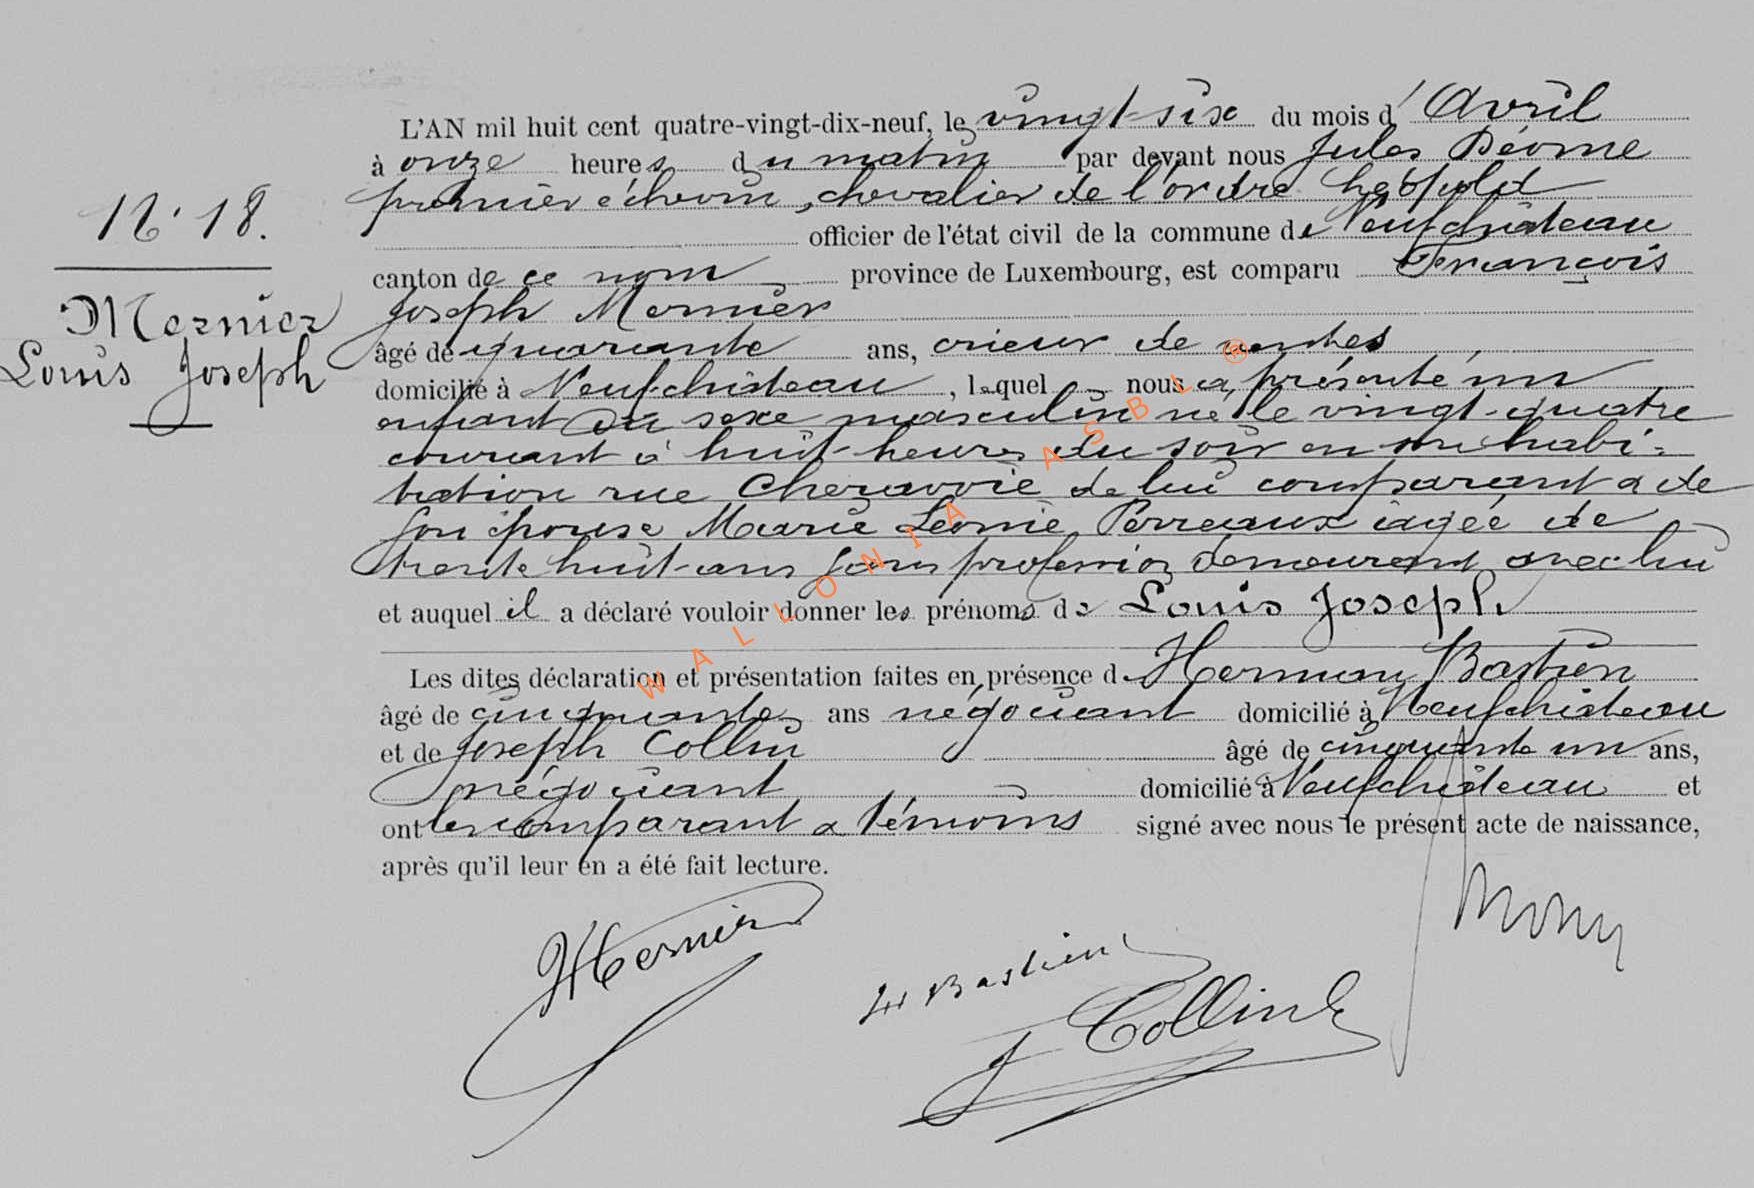 L'AN mil huit cent quatre-vingt-dix-neuf, le vingt-six du mois d'Avril
à onze heures du matin par devant nous Jules
premier échevin, chevalier de l'ordre Léopold
officier de l'état civil de la commune de Neufchâteau
canton de ce nom province de Luxembourg, est comparu François
Joseph Mernier
âgé de quarante ans, crieur de ventes
domicilié à Neufchâteau, lequel nous a présenté un
enfant du sexe masculin né le vingt-quatre
courant à huit heures du soir en son habi=
tation rue de lui comparant & de
son épouse Marie Léonie Perreaux âgée de
trente huit ans sans profession demeurant avec lui
et auquel il a déclaré vouloir donner les prénoms de Louis Joseph
Les dites déclaration et présentation faites en présence de Herman Bastien
âgé de cinquante ans négociant domicilié à Neufchâteau
et de Joseph Collin âgé de cinquante un ans,
négociant domicilié à Neufchâteau et
ont les comparant & témoins signé avec nous le présent acte de naissance,
après qu'il leur en a été fait lecture.
N. 18.
Mernier
Louis Joseph
Mernier
H Bastien
J Collin
WALLONIA ASBL ®